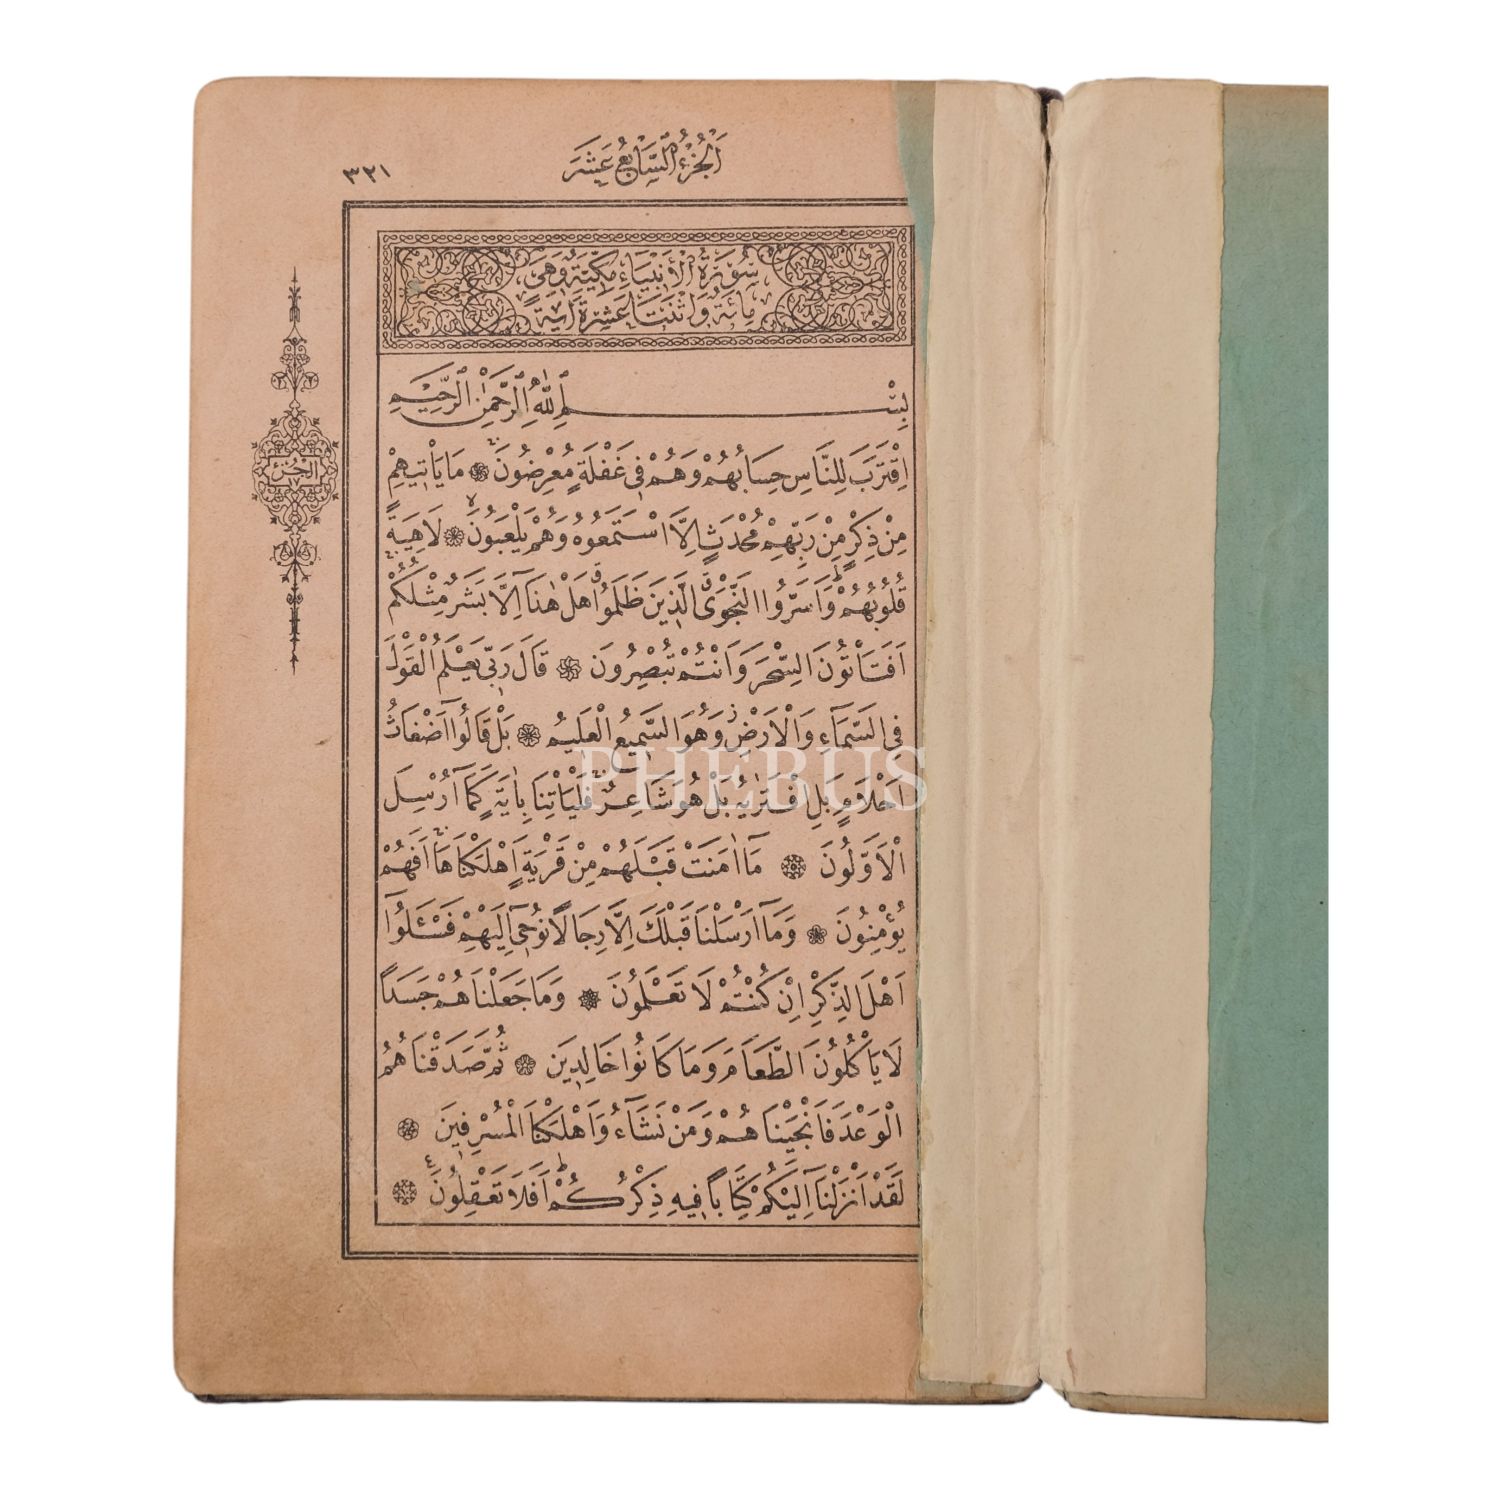 اَلْجُزْءُ السَّابِعُ عَشَرَ
٣٢١
سُورَةُ الْاَنْبِيَاءِ مَكِّيَّةٌ وَهِيَ
مِائَةٌ وَاثْنَتَا عَشِرَةَ اٰيَةً
بِسْمِ اللّٰهِ الرَّحْمٰنِ الرَّحِيمِ
اِقْتَرَبَ لِلنَّاسِ حِسَابُهُمْ وَهُمْ فِي غَفْلَةٍ مُعْرِضُونَ ۝ مَا يَأْتِيهِمْ
مِنْ ذِكْرٍ مِنْ رَبِّهِمْ مُحْدَثٍ اِلَّا اسْتَمَعُوهُ وَهُمْ يَلْعَبُونَ ۝ لَاهِيَةً
قُلُوبُهُمْ وَاَسَرُّوا النَّجْوَى الَّذِينَ ظَلَمُوا هَلْ هٰذَا اِلَّا بَشَرٌ مِثْلُكُمْ
اَفَتَأْتُونَ السِّحْرَ وَاَنْتُمْ تُبْصِرُونَ ۝ قَالَ رَبِّي يَعْلَمُ الْقَوْلَ
فِي السَّمَاءِ وَالْاَرْضِ وَهُوَ السَّمِيعُ الْعَلِيمُ ۝ بَلْ قَالُوا اَضْغَاثُ
اَحْلَامٍ بَلِ افْتَرٰيهُ بَلْ هُوَ شَاعِرٌ فَلْيَأْتِنَا بِاٰيَةٍ كَمَا اُرْسِلَ
الْاَوَّلُونَ ۝ مَا اٰمَنَتْ قَبْلَهُمْ مِنْ قَرْيَةٍ اَهْلَكْنَاهَا اَفَهُمْ
يُؤْمِنُونَ ۝ وَمَا اَرْسَلْنَا قَبْلَكَ اِلَّا رِجَالًا نُوحِي اِلَيْهِمْ فَسْئَلُوا
اَهْلَ الذِّكْرِ اِنْ كُنْتُمْ لَا تَعْلَمُونَ ۝ وَمَا جَعَلْنَاهُمْ جَسَدًا
لَا يَأْكُلُونَ الطَّعَامَ وَمَا كَانُوا خَالِدِينَ ۝ ثُمَّ صَدَقْنَاهُمُ
الْوَعْدَ فَاَنْجَيْنَاهُمْ وَمَنْ نَشَاءُ وَاَهْلَكْنَا الْمُسْرِفِينَ ۝
لَقَدْ اَنْزَلْنَا اِلَيْكُمْ كِتَابًا فِيهِ ذِكْرُكُمْ اَفَلَا تَعْقِلُونَ ۝
الْجُزْءُ
١٧
PHEBUS